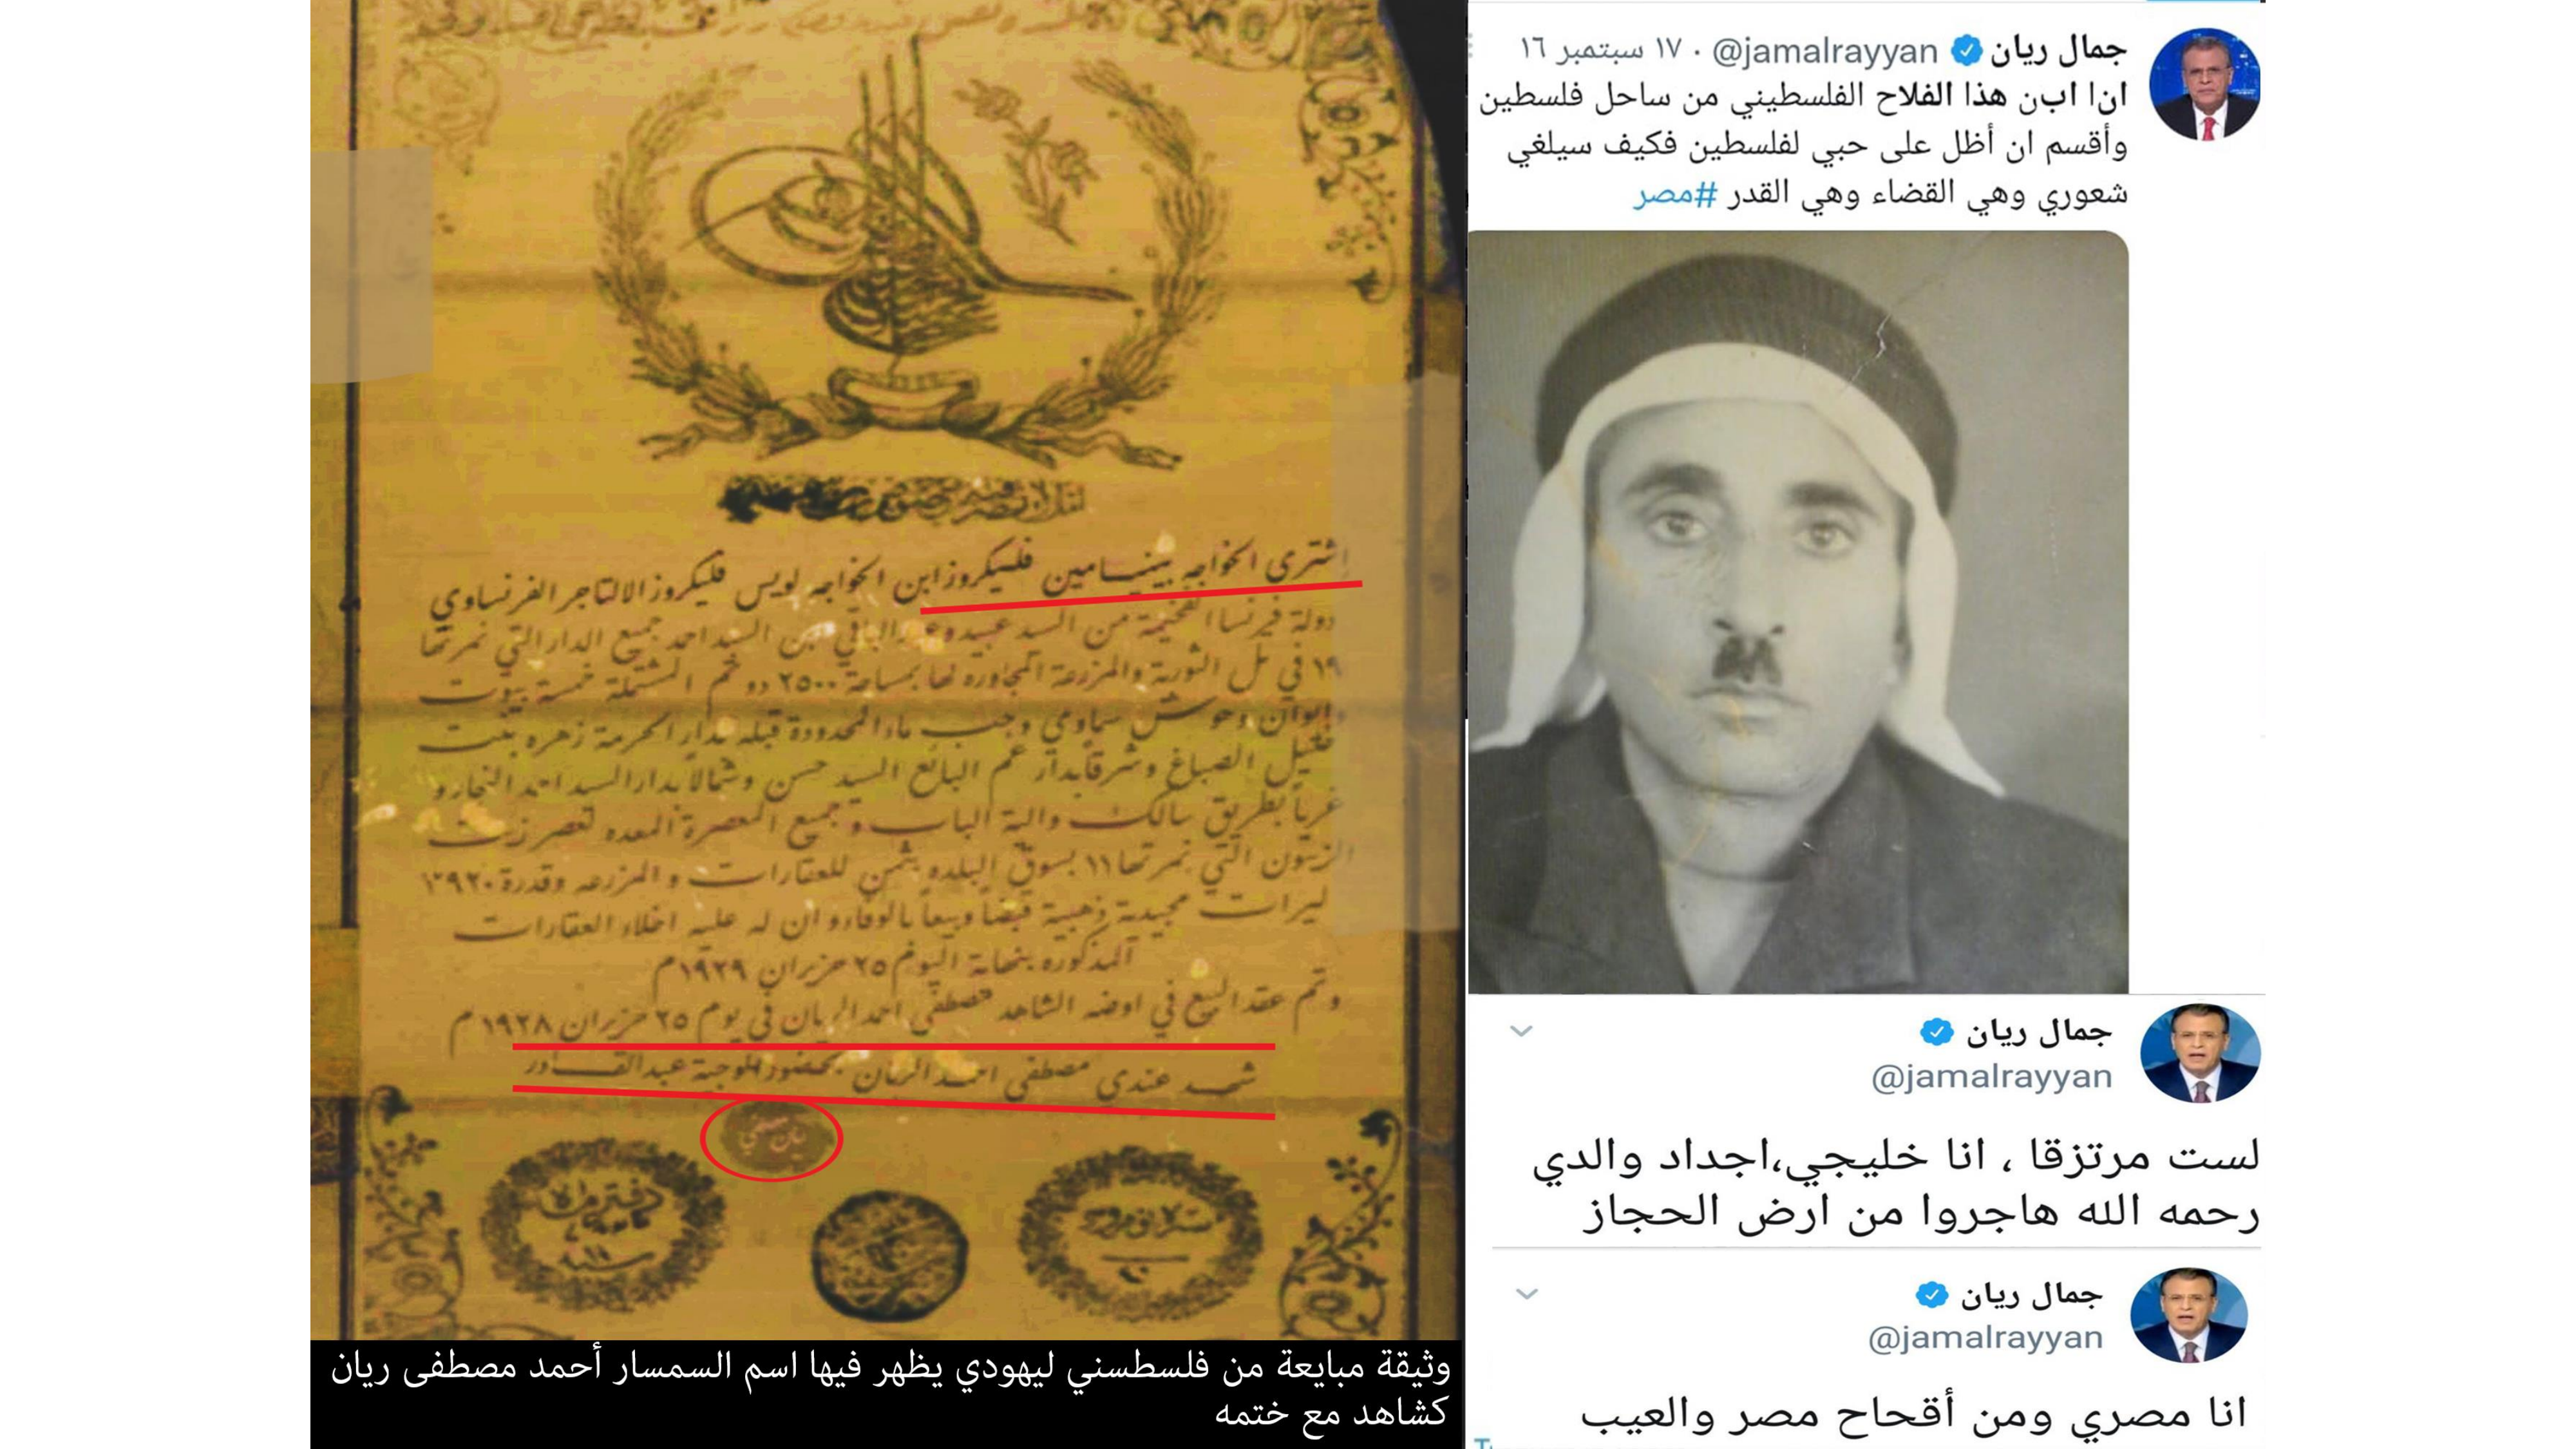 اشترى الخواجه بينسامين فلسيكروز ابن الخواجه لويس فليكروز الالتاجر الفرنساوي
دولة فرنسا الفخيمة من السيد عبيد وعبد الباقي ابن السيد احمد جميع الدار التي نمرتها
١٩ في تل الثورية والمزرعة المجاوره لها بمساحة ٢٥٠٠ دونم المشتملة خمسة بيوت
وايوان وحوش سماوي وجب ماء المحدودة قبلة بدار الحرمة زهره بنت
خليل الصباغ وشرقاً بدار عم البائع السيد حسن وشمالاً بدار السيد احمد النجار و
غرباً بطريق سالك والية الباب وجميع المعصرة المعده لعصر زيت
الزيتون التي نمرتها ١١ بسوق البلده بثمن للعقارات و المزرعه وقدرة
ليرات مجيدية ذهبية قبضاً وبيعاً بالوفاء وان له عليه اخلاء العقارات
المذكوره بنهاية اليوم ٢٥ حزيران ١٩٢٩م
وتم عقد البيع في اوضه الشاهد مصطفى احمد الريان في يوم ٢٥ حزيران ١٩٢٨ م
شهد عندي مصطفى احمد الريان بحضور الوجية عبدالقادر
ريان مصطفى
وثيقة مبايعة من فلسطسني ليهودي يظهر فيها اسم السمسار أحمد مصطفى ريان
كشاهد مع ختمه
جمال ريان @jamalrayyan · ١٧ سبتمبر ١٦
انا ابن هذا الفلاح الفلسطيني من ساحل فلسطين
وأقسم ان أظل على حبي لفلسطين فكيف سيلغي
شعوري وهي القضاء وهي القدر #مصر
جمال ريان
@jamalrayyan
لست مرتزقا ، انا خليجي،اجداد والدي
رحمه الله هاجروا من ارض الحجاز
جمال ريان
@jamalrayyan
انا مصري ومن أقحاح مصر والعيب